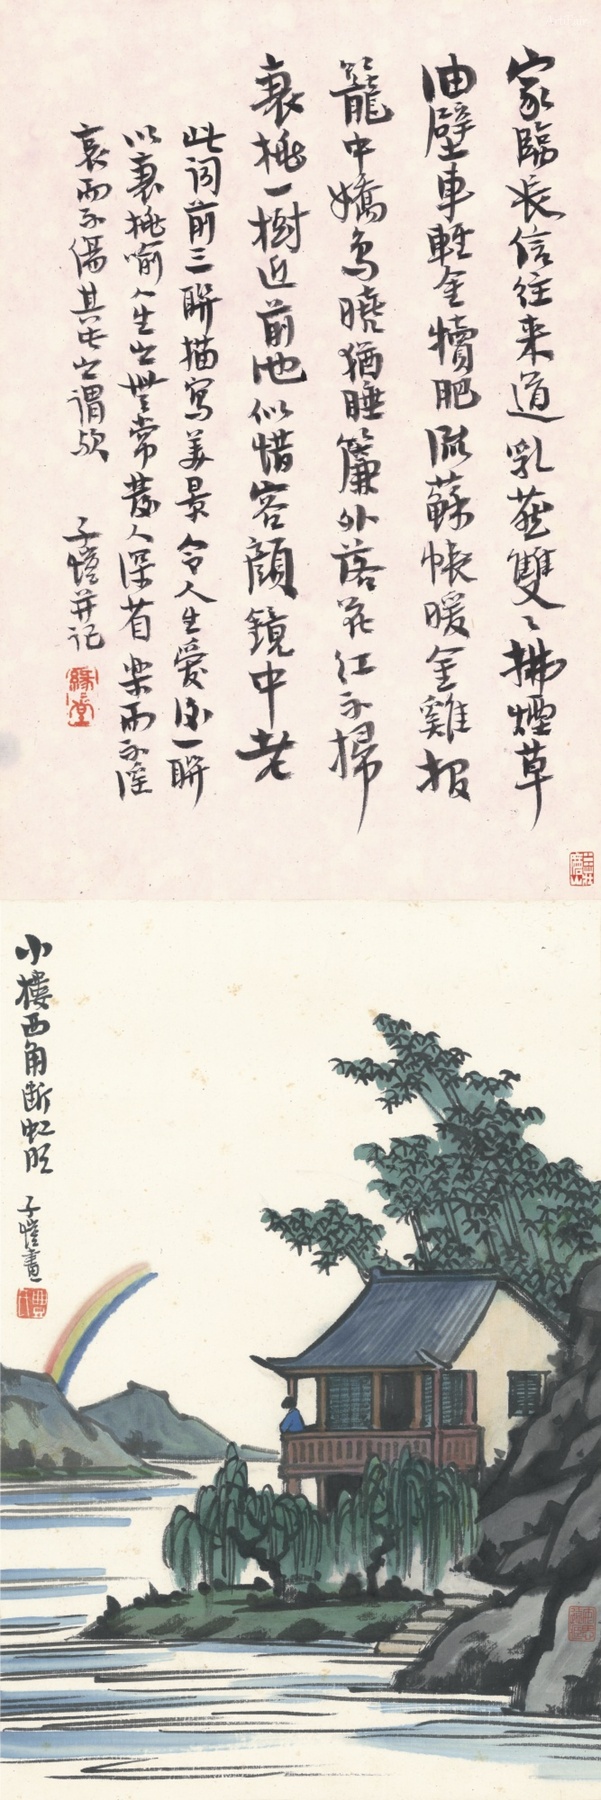 家臨長信往来道乳燕雙〻拂煙草
油壁車軽金犢肥流蘇帳暖金雞報
籠中嬌鳥曉猶睡簾外落花红不掃
衰桃一樹近前池似惜容顏鏡中老
此詞前三聯描寫美景令人生愛末一聯
以衰桃喻人生之無常發人深省樂而不淫
哀而不傷其此之謂欤
子愷并記
緣堂
小樓西角断虹明
子愷畫
豐氏